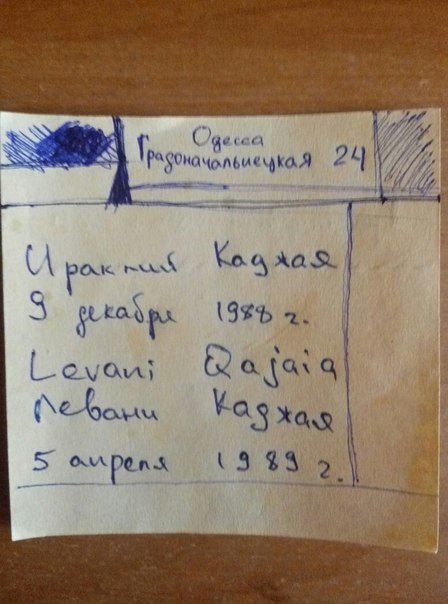 Одесса
Градоначальницкая 24
Ираклий Каджая
9 декабря 1988 г.
Levani Qajaia
Левани Каджая
5 апреля 1989 г.